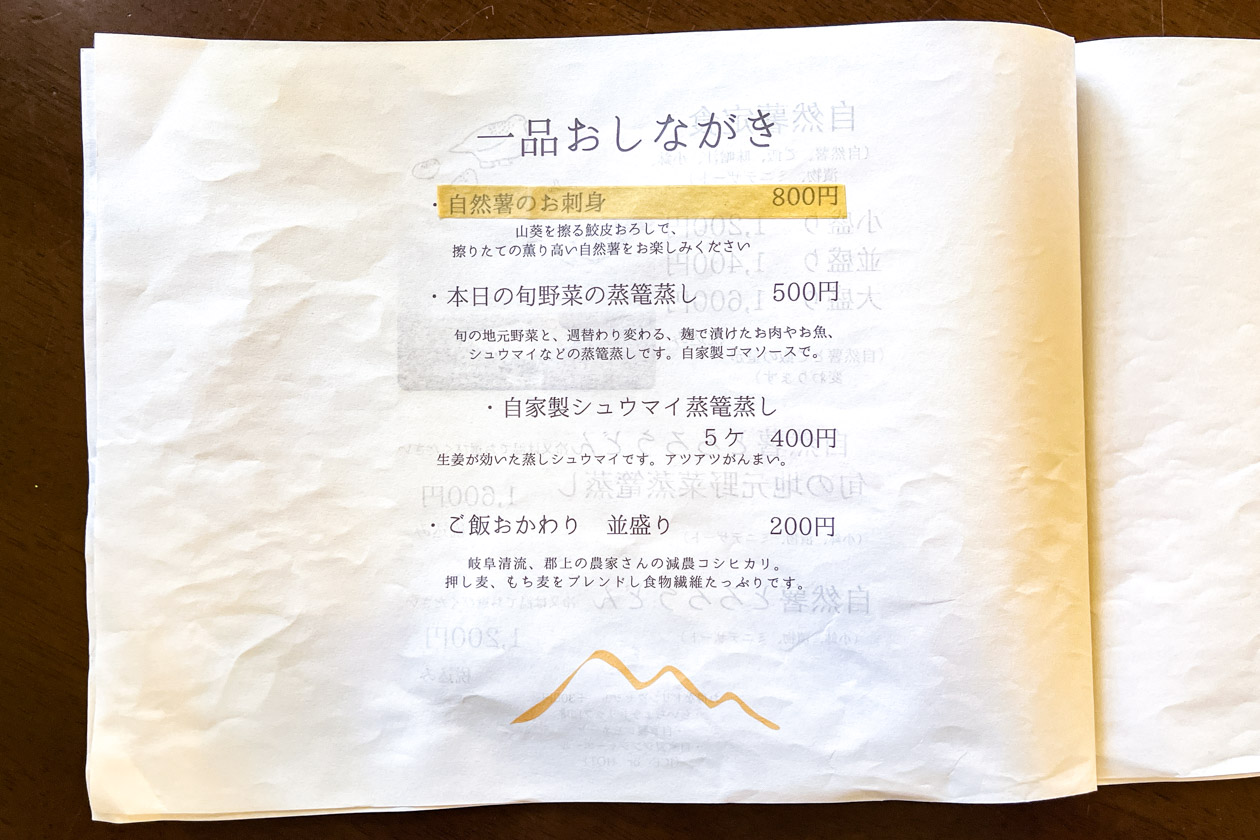 一品おしながき
・自然薯のお刺身 800円
山葵を擦る鮫皮おろしで、
擦りたての薫り高い自然薯をお楽しみください
・本日の旬野菜の蒸篭蒸し 500円
旬の地元野菜と、週替わり変わる、麹で漬けたお肉やお魚、
シュウマイなどの蒸篭蒸しです。自家製ゴマソースで。
・自家製シュウマイ蒸篭蒸し
５ケ 400円
生姜が効いた蒸しシュウマイです。アツアツがんまい。
・ご飯おかわり 並盛り 200円
岐阜清流、郡上の農家さんの減農コシヒカリ。
押し麦、もち麦をブレンドし食物繊維たっぷりです。